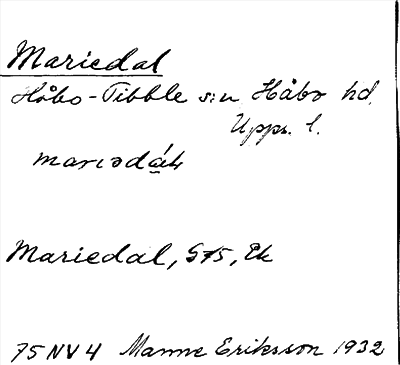 Mariedal
Håbo-Tibble s:n Håbo hd.
Upps. l.
mariedal, GTS, Ek
75 NV 4 Manne Eriksson 1932